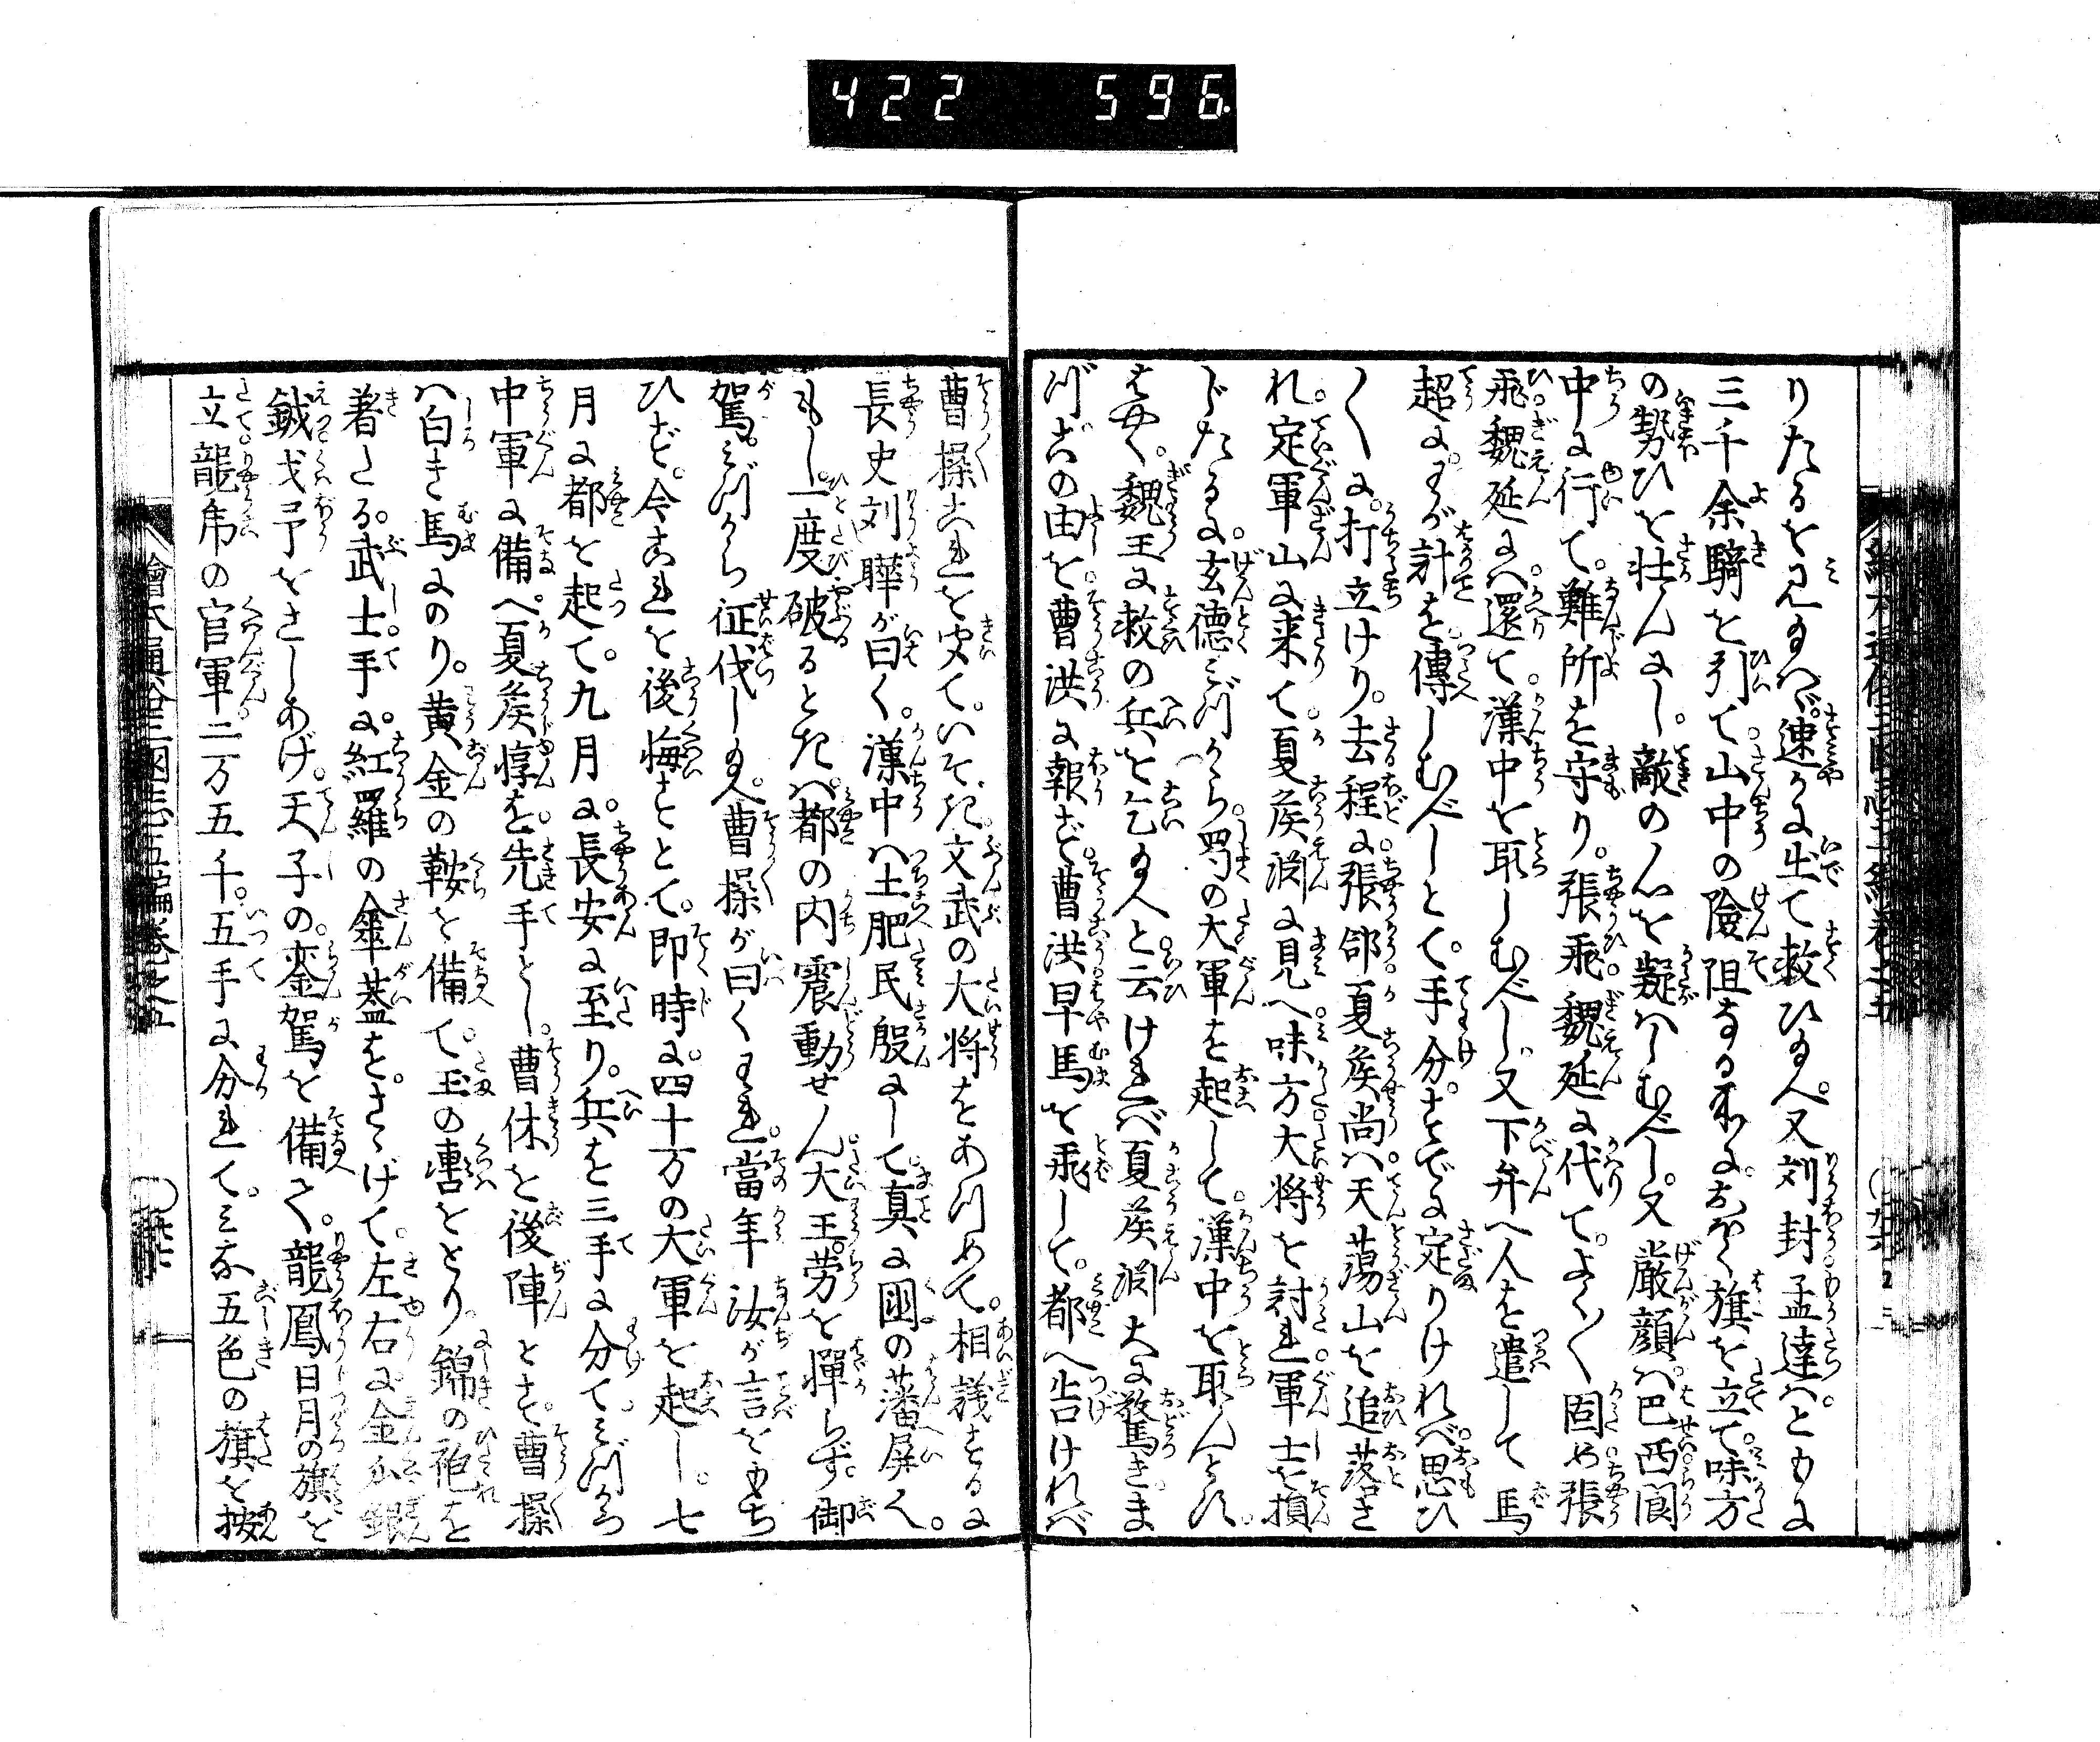 422 596
りたるを見給はゞ速かに出て救ひ給へ。又刘封孟達はともに
三千余騎を引て山中の險阻なる所に。おほく旗を立て味方
の勢ひを壮んにし。敵の心を疑はしむべし。又厳顔は巴西閬
中に行て。難所を守り。張飛魏延に代て。よく〳〵固め張
飛魏延は還て漢中を取しむべし。又下弁へ人を遣して馬
超に。わが計を傳しむべしとて。手分。すでに定りければ思ひ
〳〵に。打立けり。去程に。張郃夏侯尚は天蕩山を追落さ
れ。定軍山に来て夏侯渕に見へ味方大将を討れ軍士を損
じたるに。玄德みづから。蜀の大軍を起して。漢中を取んとす。
はやく。魏王に救の兵を乞給へと云ければ夏侯渕大に驚きま
づ此の由を曹洪に報ず。曹洪早馬を飛して。都へ告ければ
曹操これを聞て。いそぎ文武の大将をあつめて。相議するに
長史刘曄が曰く。漢中は土肥民殷にして真に国の藩屏也。
もし一度破るときは都の内震動せん。大王。労を憚らず。御
駕。みづから征伐し給へ。曹操が曰くわれ。當年汝が言をもち
ひず。今これを後悔すとて。即時に。四十万の大軍を起し。七
月に都を起て。九月に。長安に至り。兵を三手に分て。みづから
中軍に備へ。夏侯惇を先手とし。曹休を後陣とす。曹操
は白き馬にのり。黄金の鞍を備て。玉の轡をとり。錦の袍を
著たる。武士手に。紅羅の傘蓋を。さゝげて。左右に金瓜銀
鉞戈予をさしあげ。天子の。鑾駕を備へ。龍鳳日月の旗を
立龍虎の官軍二万五千。五手に分れて。みな五色の旗を按
繪本通俗三國志五編巻之五